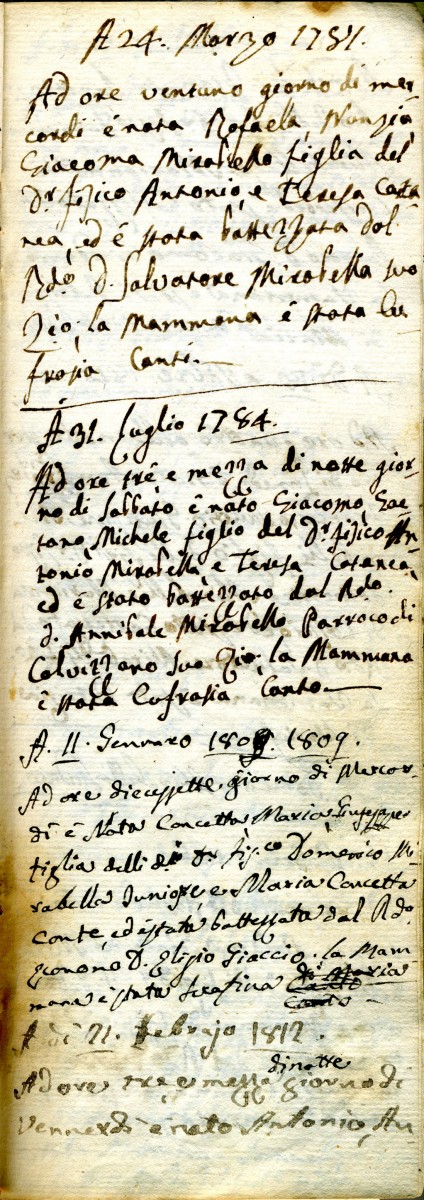 A 24. Marzo 1781.
Ad ore ventuno giorno di mer
cordi è nata Rafaela, Nunzia
Giacoma Mirabello figlia del
Dr. fisico Antonio, e Teresa Cata
nea, ed è stata battezzata dal
Rdo. D. Salvatore Mirabella suo
Zio; la Mammana è stata Eu
frasia Canti.
A 31. Luglio 1784.
Ad ore tré e mezza di notte gior-
no di Sabbato è nato Giacomo, Gae
tano, Michele figlio del Dr. fisico An
tonio Mirabella, e Teresa Catanea,
ed è stato battezzato dal Rdo.
D. Annibale Mirabello Parroco di
Calvizzano suo Zio; la Mammana
è stata Eufrasia Canto.
A. 11. Gennaro 1809. 1809.
Ad ore diecessette, giorno di Mercor-
di è Nata Concetta Maria Giuseppa
figlia delli Dr. fis.co Domenico Mi
rabella Juniore, e Maria Concetta
Conte, ed è stata battezzata dal Rdo
Economo D. Eligio Giaccio. la Mam
mana è stata Serafina di Maria
Canto
A di 21. Febrajo 1812.
di notte
Ad ore tre, e mezza giorno di
Vennerdì è nato Antonio, An